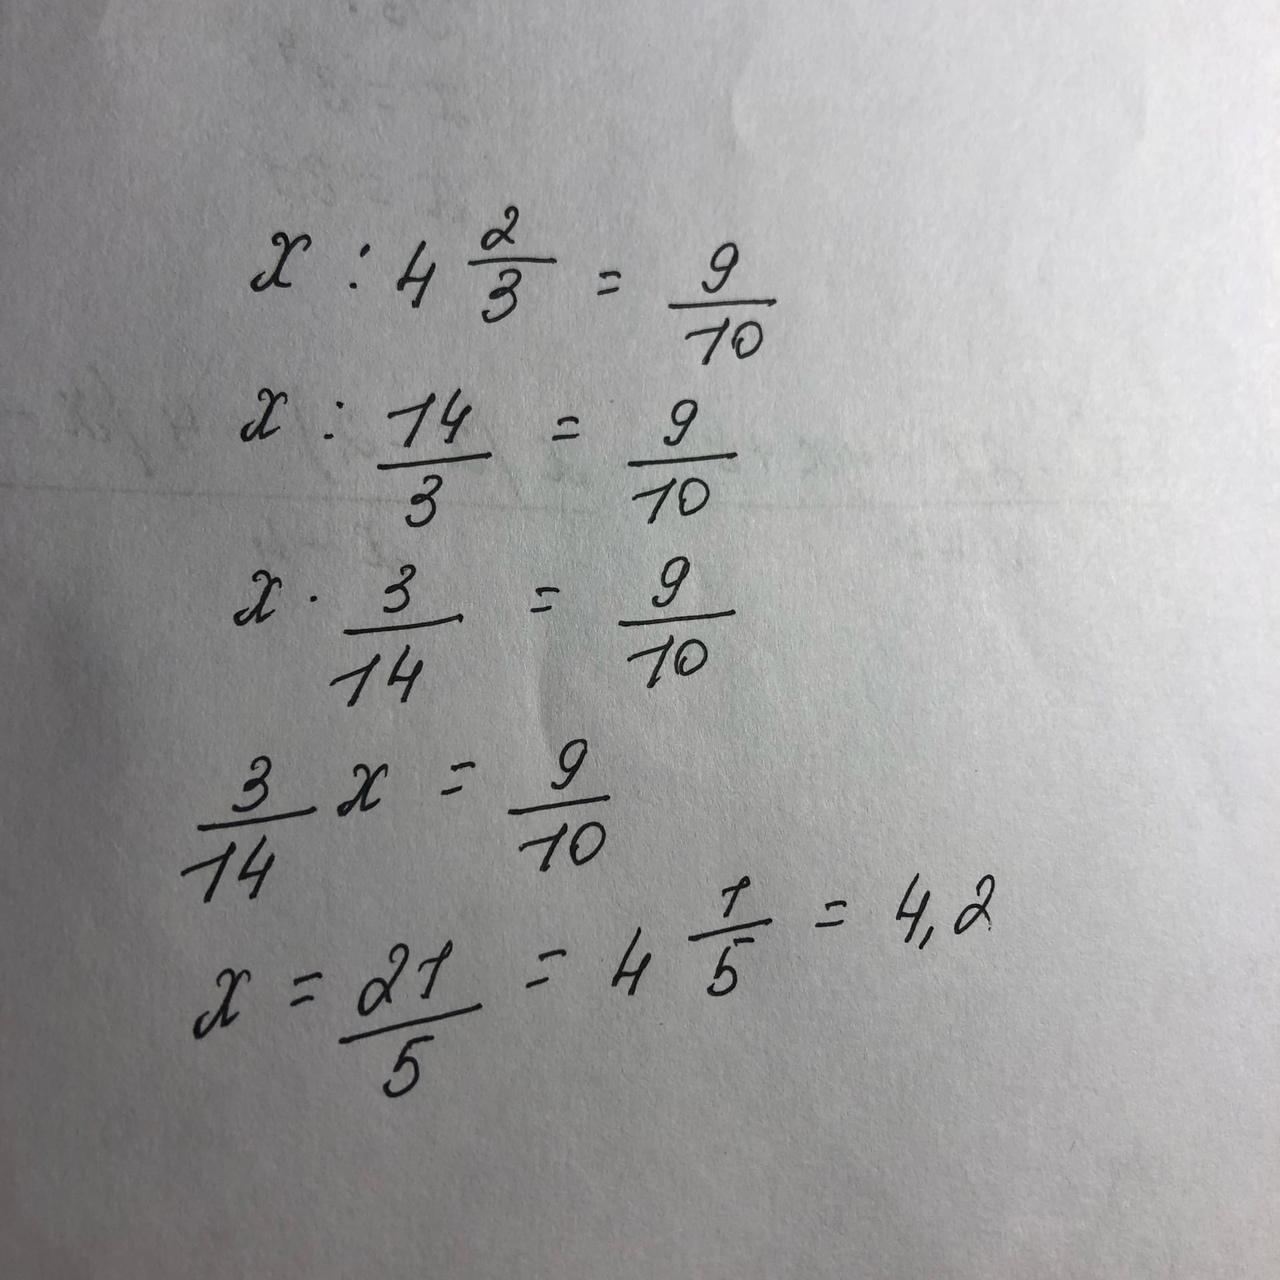 x : 4 2/3 = 9/10
x : 14/3 = 9/10
x · 3/14 = 9/10
3/14 x = 9/10
x = 21/5 = 4 1/5 = 4,2